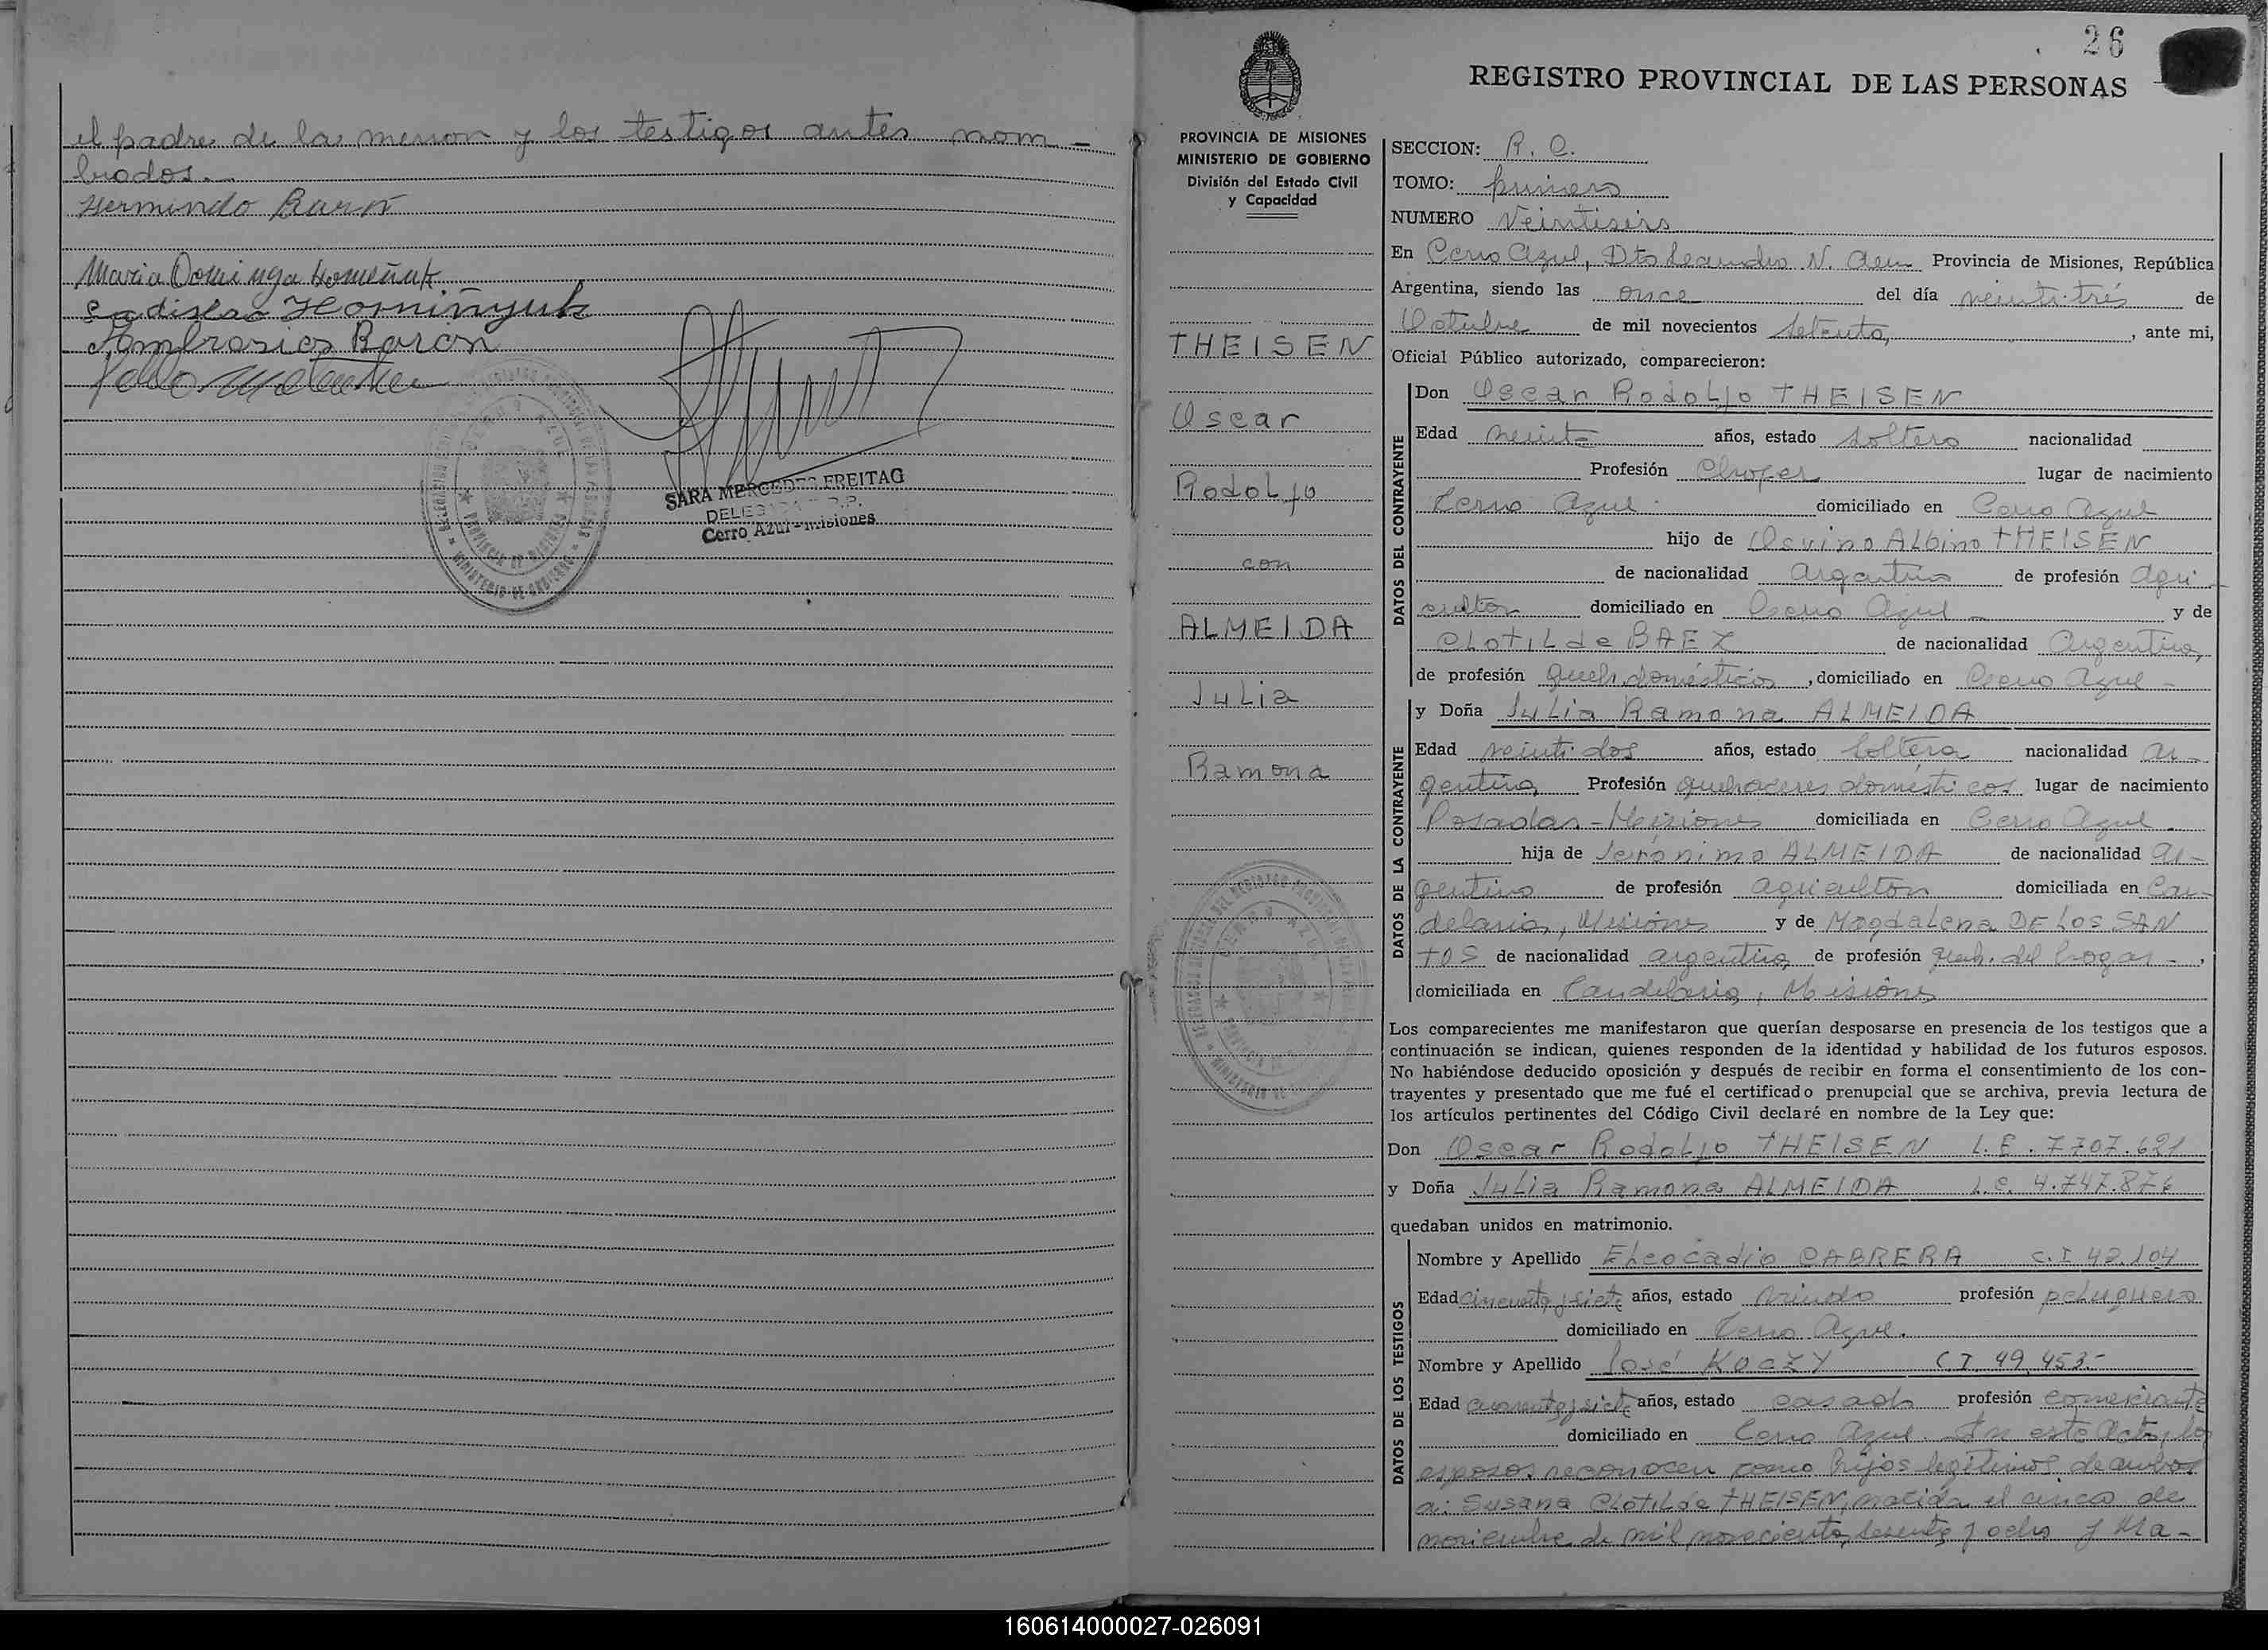 el padre de la menor y los testigos antes nom-
brados.-
Hermindo Baron
Maria Dominga Homeñuk
Ladislao Homiñyuk
Ambrosio Barón
SARA MERCEDES FREITAG
Cerro Azul - Misiones
26
REGISTRO PROVINCIAL DE LAS PERSONAS
PROVINCIA DE MISIONES
MINISTERIO DE GOBIERNO
División del Estado Civil
y Capacidad
THEISEN
Oscar
Rodolfo
con
ALMEIDA
Julia
Ramona
SECCION: R. C.
TOMO: primero
NUMERO Veintiseis
En Cerro Azul, Dto Leandro N. Alem Provincia de Misiones, República
Argentina, siendo las once del día veintitrés de
Octubre de mil novecientos setenta, ante mi,
Oficial Público autorizado, comparecieron:
DATOS DEL CONTRAYENTE
Don Oscar Rodolfo THEISEN
Edad veinte años, estado soltero nacionalidad
Profesión Chofer lugar de nacimiento
Cerro Azul domiciliado en Cerro Azul
hijo de Osvino Albino THEISEN
de nacionalidad argentino de profesión agri-
cultor domiciliado en Cerro Azul - y de
Clotilde BAEZ de nacionalidad Argentina,
de profesión Queh. domésticos, domiciliado en Cerro Azul -
DATOS DE LA CONTRAYENTE
y Doña Julia Ramona ALMEIDA
Edad veintidos años, estado soltera nacionalidad ar-
gentina Profesión quehaceres domésticos lugar de nacimiento
Posadas - Misiones domiciliada en Cerro Azul -
hija de Jerónimo ALMEIDA de nacionalidad ar-
gentino de profesión agricultor domiciliada en Can-
delaria, Misiones y de Magdalena DE LOS SAN
TOS de nacionalidad argentina de profesión queh. del hogar -,
domiciliada en Candelaria, Misiones
Los comparecientes me manifestaron que querían desposarse en presencia de los testigos que a
continuación se indican, quienes responden de la identidad y habilidad de los futuros esposos.
No habiéndose deducido oposición y después de recibir en forma el consentimiento de los con-
trayentes y presentado que me fué el certificado prenupcial que se archiva, previa lectura de
los artículos pertinentes del Código Civil declaré en nombre de la Ley que:
Don Oscar Rodolfo THEISEN L.E. 7707.621
y Doña Julia Ramona ALMEIDA L.C. 4.747.876
quedaban unidos en matrimonio.
DATOS DE LOS TESTIGOS
Nombre y Apellido Eleocadio CABRERA C.I 42.104
Edad cincuenta y siete años, estado viudo profesión peluquero
domiciliado en Cerro Azul.
Nombre y Apellido José KOCZY C I 49 453-
Edad cuarenta y siete años, estado casado profesión comerciante
domiciliado en Cerro Azul. En este acto, los
esposos reconocen como hijos legítimos de ambos
a: Susana Clotilde THEISEN, nacida el cinco de
noviembre de mil novecientos sesenta y ocho y Ma-
160614000027-026091